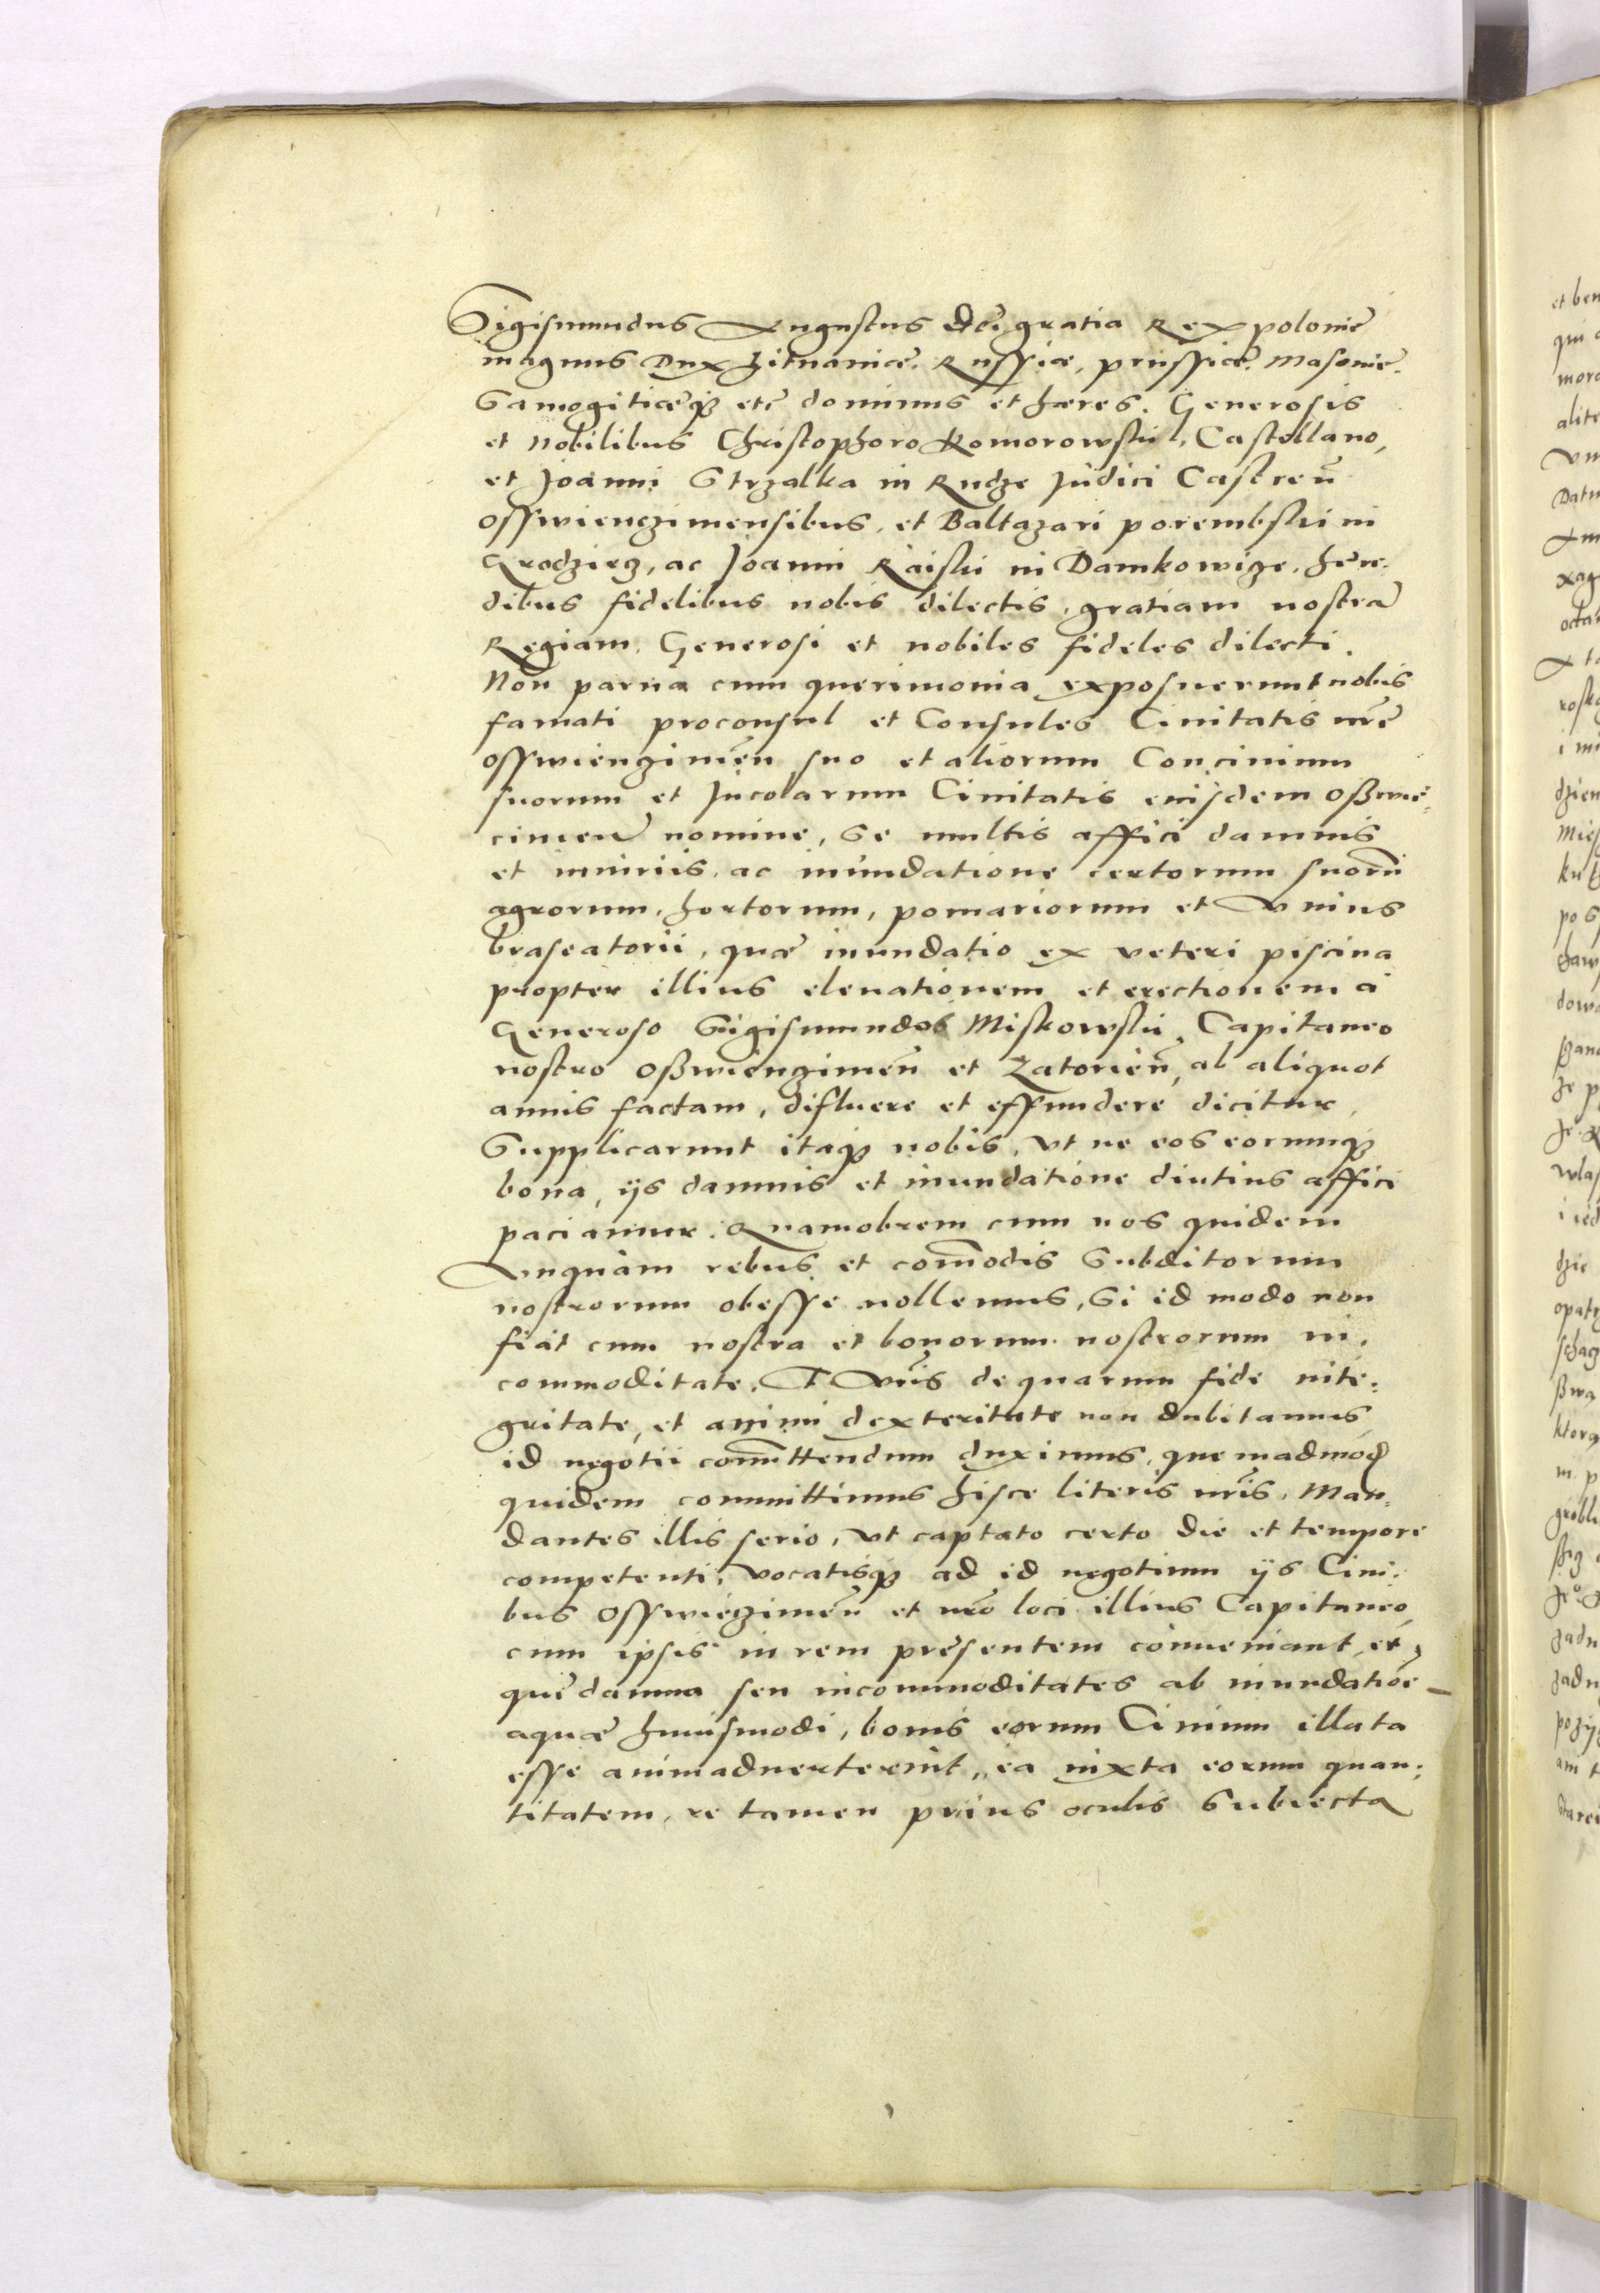 Sigismundus Augustus dei gratia Rex polonie
magnus Dux Lituaniæ. Russiæ, prussiæ. Masovie.
Samogitiæq; etc̄ dominus et hæres. Generosis
et Nobilibus Christophoro Komorowski, Castellano,
et Joanni Strzalka in Rudze Judici Castreñ
osswienczimensibus, et Baltazari porembski in
Grodziecz, ac Joanni Raiski in Damkowize, hære-
dibus fidelibus nobis dilectis, gratiam nostrā
Regiam. Generosi et nobiles fideles dilecti.
Non parua cum querimonia exposuerunt nobis
famati proconsul et Consules Ciuitatis nr̄e
osswienzimeñ suo et aliorum Conciuium
suorum et Incolarum Ciuitatis euisdem Oßwie-
cimeñ nomine, Se multis affici damnis
et iniuriis, ac inundatione certorum suorū
agrorum, hortorum, pomariorum et Vnius
braseatorii, quæ inundatio ex veteri piscina
propter illius eleuationem et erectionem à
Generoso Sigismundo Miskowski, Capitaneo
nostro Oßwienzimeñ et Zatorieñ, ab aliquot
annis factam, difluere et effundere dicitur,
Supplicarunt itaq; nobis, vt ne eos eorumq;
bona, ijs damnis et inundatione diutius affici
paciamur. Quamobrem cum nos quidem
Vnquàm rebus et com̄odis Subditorum
nostrorum obesse nollemus, Si id modo non
fiat cum nostra et bonorum nostrorum in-
commoditate. F Vr̄is de quarum fide inte-
gritate, et animi dexteritate non dubitamus
id negotii com̄ittendum duximus, quemadmod̄
quidem committimus hisce literis nr̄is, Man-
dantes illis serio, vt captato certo die et tempore
competenti, vocatisq; ad id negotium ijs Ciui-
bus Osswięzimeñ et nr̄o loci illius Capitaneo,
cum ipsis in rem præsentem conueniant, et
quæ damna seu incommoditates ab inundatioē
aquæ huiusmodi, bonis eorum Ciuium illata
esse animaduerterint, ea iuxta eorum quan-
titatem, re tamen prius oculis Subiecta